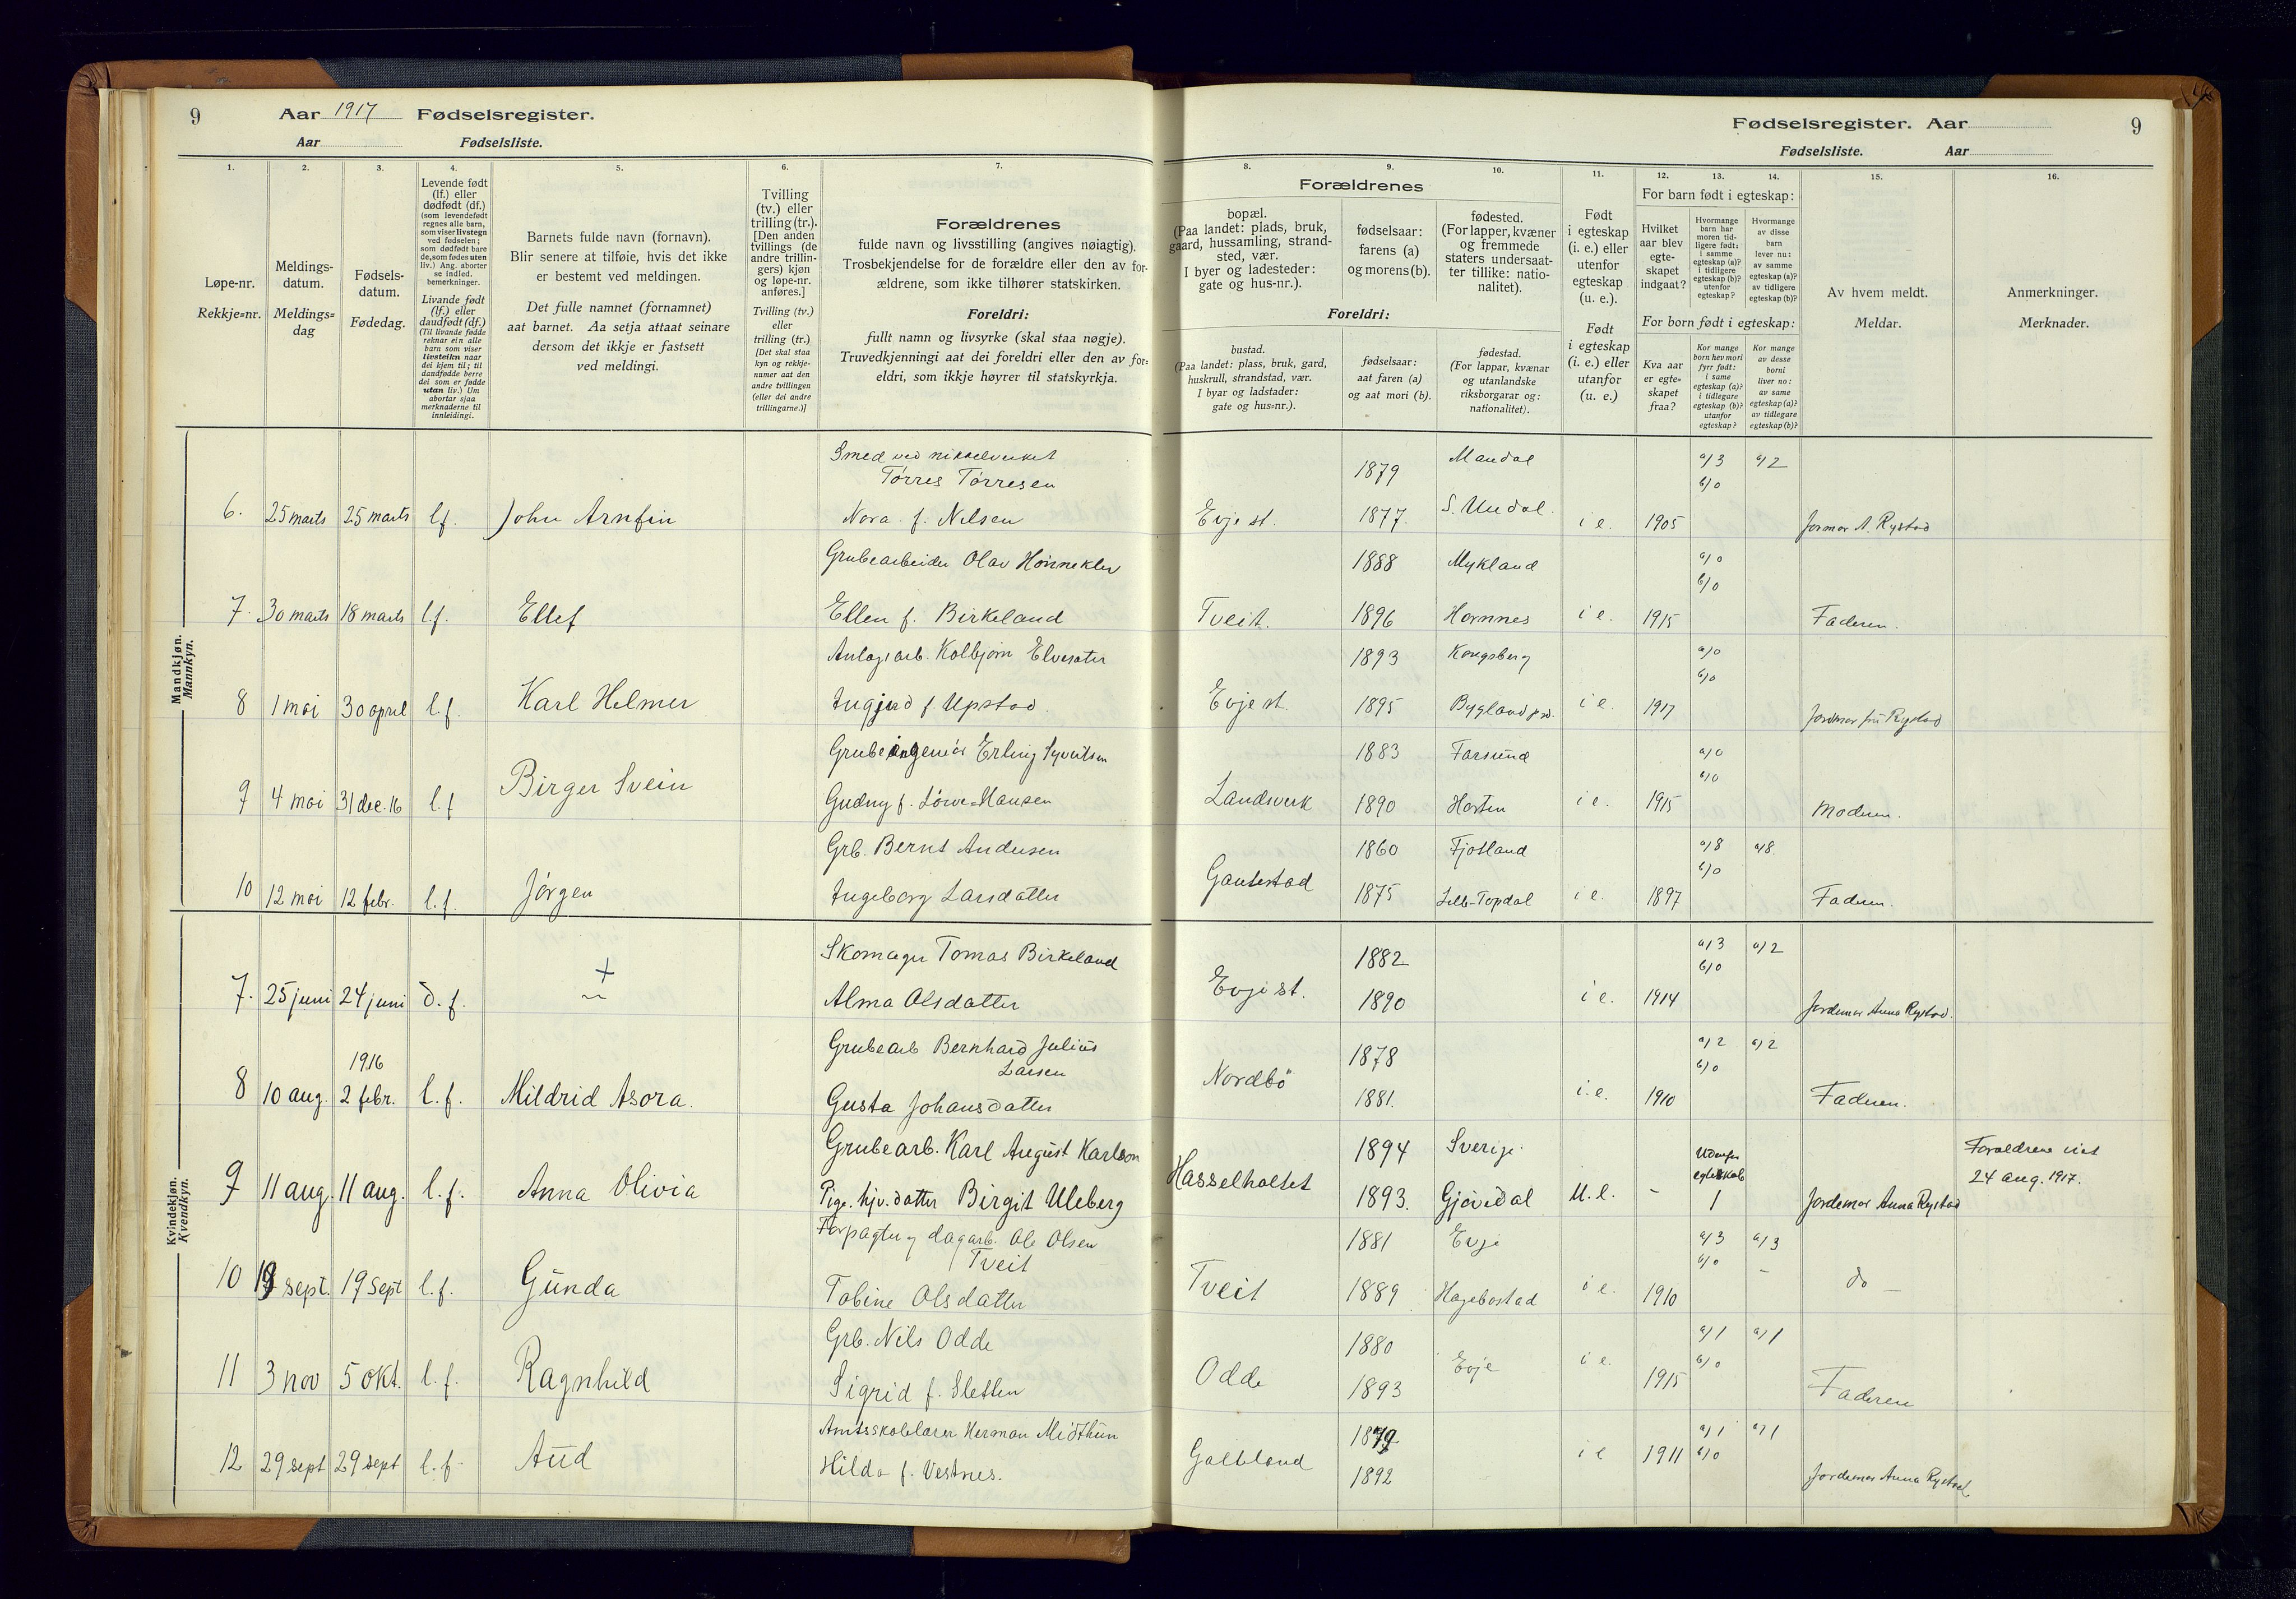 9 Aar 1917 Fødselsregister.
Aar Fødselsliste.
Fødselsregister. Aar 9
Fødselsliste. Aar
1. 2. 3. 4. 5. 6. 7.
Løpe-nr.
Rekkje=nr.
Meldings-
datum.
Meldings=
dag
Fødsels-
datum.
Fødedag.
Levende født
(lf.) eller
dødfødt (df.)
(som levendefødt
regnes alle barn,
som viser livstegn
ved fødselen;
som dødfødt bare
de, som fødes uten
liv.) Ang. aborter
se indled.
bemerkninger.
Livande født
(lf.) eller
daudfødt (df.)
(Til livande fødde
reknar ein alle
barn som viser
livsteikn naar
dei kjem til; til
daudfødde berre
dei som er fødde
utan liv.) Um
abortar sjaa
merknaderne til
innleidingi.
Barnets fulde navn (fornavn).
Blir senere at tilføie, hvis det ikke
er bestemt ved meldingen.
Det fulle namnet (fornamnet)
aat barnet. Aa setja attaat seinare
dersom det ikkje er fastsett
ved meldingi.
Tvilling
(tv.) eller
trilling (tr.).
[Den anden
tvillings (de
andre trillin-
gers) kjøn
og løpe-nr.
anføres.]
Tvilling (tv.)
eller
trilling (tr.)
[Det skal staa
kyn og rekkje-
numer aat den
andre tvillingen
(eller dei andre
trillingarne.)]
Forældrenes
fulde navn og livsstilling (angives nøiagtig).
Trosbekjendelse for de forældre eller den av for-
ældrene, som ikke tilhører statskirken.
Foreldri:
fullt namn og livsyrke (skal staa nøgje).
Truvedkjenningi aat dei foreldri eller den av for=
eldri, som ikkje høyrer til statskyrkja.
8. 9. 10. 11. 12. 13. 14. 15. 16.
Forældrenes
bopæl.
(Paa landet: plads, bruk,
gaard, hussamling, strand-
sted, vær.
I byer og ladesteder:
gate og hus-nr.).
fødselsaar:
farens (a)
og morens (b).
fødested.
(For lapper, kvæner
og fremmede
staters undersaat-
ter tillike: natio-
nalitet).
Foreldri:
bustad.
(Paa landet: plass, bruk, gard,
huskrull, strandstad, vær.
I byar og ladstader:
gate og hus=nr.).
fødselsaar:
aat faren (a)
og aat mori (b).
fødestad.
(For lappar, kvænar
og utanlandske
riksborgarar og:
nationalitet).
Født
i egteskap
(i. e.) eller
utenfor
egteskap
(u. e.).
Født
i egteskap
(i. e.) eller
utanfor
(u. e.)
For barn født i egteskap:
Hvilket
aar blev
egte-
skapet
indgaat?
Hvormange
barn har
moren tid-
ligere født:
i samme
egteskap (a)?
i tidligere
egteskap (b)?
utenfor
egteskap?
Hvormange
av disse
barn
lever nu:
av samme
egteskap (a)?
av tidligere
egteskap (b)?
For born født i egteskap:
Kva aar
er egte=
skapet
fraa?
Kor mange
born hev mori
fyrr født:
i same
egteskap (a)?
i tidlegare
egteskap (b)?
utanfor
egteskap?
Kor mange
av desse
borni
liver no:
av same
egteskap (a)?
av tidlegare
egteskap (b)?
Av hvem meldt.
Meldar.
Anmerkninger.
Merknader.
Mandkjøn.
Mannkyn.
Smed ved nikkelverket 1879 Mandal a) 3 a) 2
Tørres Tørresen b) 0
6. 25 marts 25 marts lf. John Arnfin Nora f. Nilsen Evje st. 1877. S. Undal. i e. 1905 Jormor A. Rystad
Grubearbeider Olav Hønnekler 1888 Mykland a) 0
b) 0
7. 30 marts 18 marts l.f. Ellef Ellen f. Birkeland Tveit. 1896 Hornnes i e. 1915 Faderen.
Anlægsarb. Kolbjørn Elvesæter 1893 Kongsberg a) 0
b) 0
8 1 mai 30 april l.f. Karl Helmer Ingjerd f. Upstad. Evje st. 1895 Bygland psd. i e. 1917 Jordmor fru Rystad
Grubeingeniør Erling Syvertsen 1883 Farsund a) 0
b) 0
9 4 mai 31 dec. 16 l.f Birger Svein Gudny f. Løwe-Hansen Landsverk 1890 Horten i e. 1915 Moderen.
Grb. Bernt Andersen 1860 Fjotland a) 8 a) 8.
b) 0
10 12 mai 12 febr. l.f. Jørgen Ingeborg Larsdatter Gautestad 1875 i e. 1897 Faderen.
Kvindekjøn.
Kvendkyn.
Skomager Tomas Birkeland 1882 a) 3 a) 2
+ b) 0
7. 25 juni 24 juni d.f. ~ Alma Olsdatter Evje st. 1890 i e. 1914 Jordemor Anna Rystad.
Grubearb Bernhard Julius 1878 a) 2 a) 2
1916 Larsen b) 0
8 10 aug. 2 febr. l.f. Mildrid Asora. Gusta Johansdatter Nordbö 1881. i. e. 1910 Faderen.
Grubearb. Karl August Karlson 1894 Sverige. Udenfor Forældrene viet
egteskab 24 aug. 1917.
9 11 aug. 11 aug. l.f. Anna Olivia Pige. hjv. datter Birgit Uleberg Hasselholtet 1893. Gjøvdal U. e. - 1 Jordemor Anna Rystad
Forpagter og dagarb. Ole Olsen 1881 Evje a) 3 a) 3
Tveit b) 0 -
10 19 sept. 19 sept l.f. Gunda Tobine Olsdatter Tveit 1889 Hægebostad i e. 1910 do -
Grb. Nils Odde 1880 a) 1 a) 1
b) 0
11 3 nov 5 okt. l.f. Ragnhild Sigrid f. Sletten Odde 1893 Evje i e. 1915 Faderen
Amtsskolelærer Herman Midthun 1879 a) 1 a) 1
12 29 sept 29 sept l.f. Aud Hilda f. Vestnes. Galteland 1892 i e 1911 b) 0 Jordemor Anna Rystad.